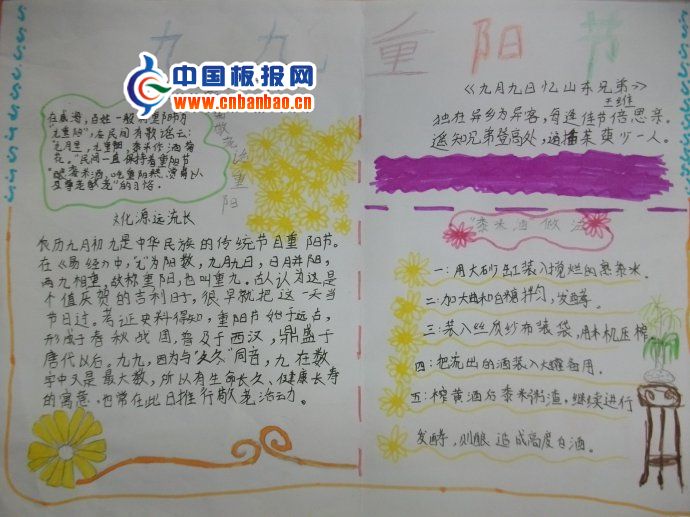 九九重阳节
中国板报网
www.cnbanbao.cn
谈重阳
文化源远流长
农历九月初九是中华民族的传统节日重阳节。
在《易经》中，"九"为阳数，九月九日，日月并阳，
两九相重，故称重阳，也叫重九。古人认为这是
个值庆贺的吉利日子，很早就把这一天当
节日过。考证史料得知，重阳节始于远古，
形成于春秋战国，普及于西汉，鼎盛于
唐代以后。九九，因为与"久久"同音，九在数
字中又是最大数，所以有生命长久、健康长寿
的寓意，也常在此日推行敬老活动。
《九月九日忆山东兄弟》
王维
独在异乡为异客，每逢佳节倍思亲。
遥知兄弟登高处，遍插茱萸少一人。
"黍米酒做法
一：用大砂缸装入搅烂的熟黍米。
二：加大曲和白糖拌匀，发酵。
三：装入丝质纱布装袋，用木机压榨
四：把流出的酒装入大罐备用。
五：榨黄酒后黍米粥渣，继续进行
发酵，则酿造成高度白酒。